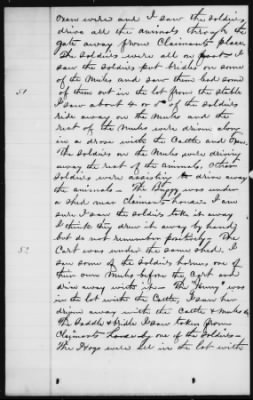 Oxen were and I saw the soldiers
drive all the animals through the
gate away from Claimants place.
The Soldiers were all on foot - I
saw the soldiers put bridles on some
of the Mules and saw them lead some
of them out in the lot from the stable
51 I saw about 4 or 5 of the soldiers
ride away on the Mules and the
rest of the Mules were driven along
in a drove with the Cattle and Oxen.
The Soldiers on the Mules were driving
away the rest of the animals, other
Soldiers were assisting to drive away
the animals - The Buggy was under
a shed near Claimants house. I am
sure I saw the soldiers take it away
I think they drew it away by hand
but do not remember positively. The
52 Cart was under the same shed. I
saw some of the Soldiers harness one of
their own Mules before the Cart and
drive away with it - The "Jenny" was
in the lot with the Cattle, I saw her
driven away with the Cattle & Mules &c
The Saddle & bridle I saw taken from
Claimants house by one of the Soldiers -
The Hogs were in the lot with